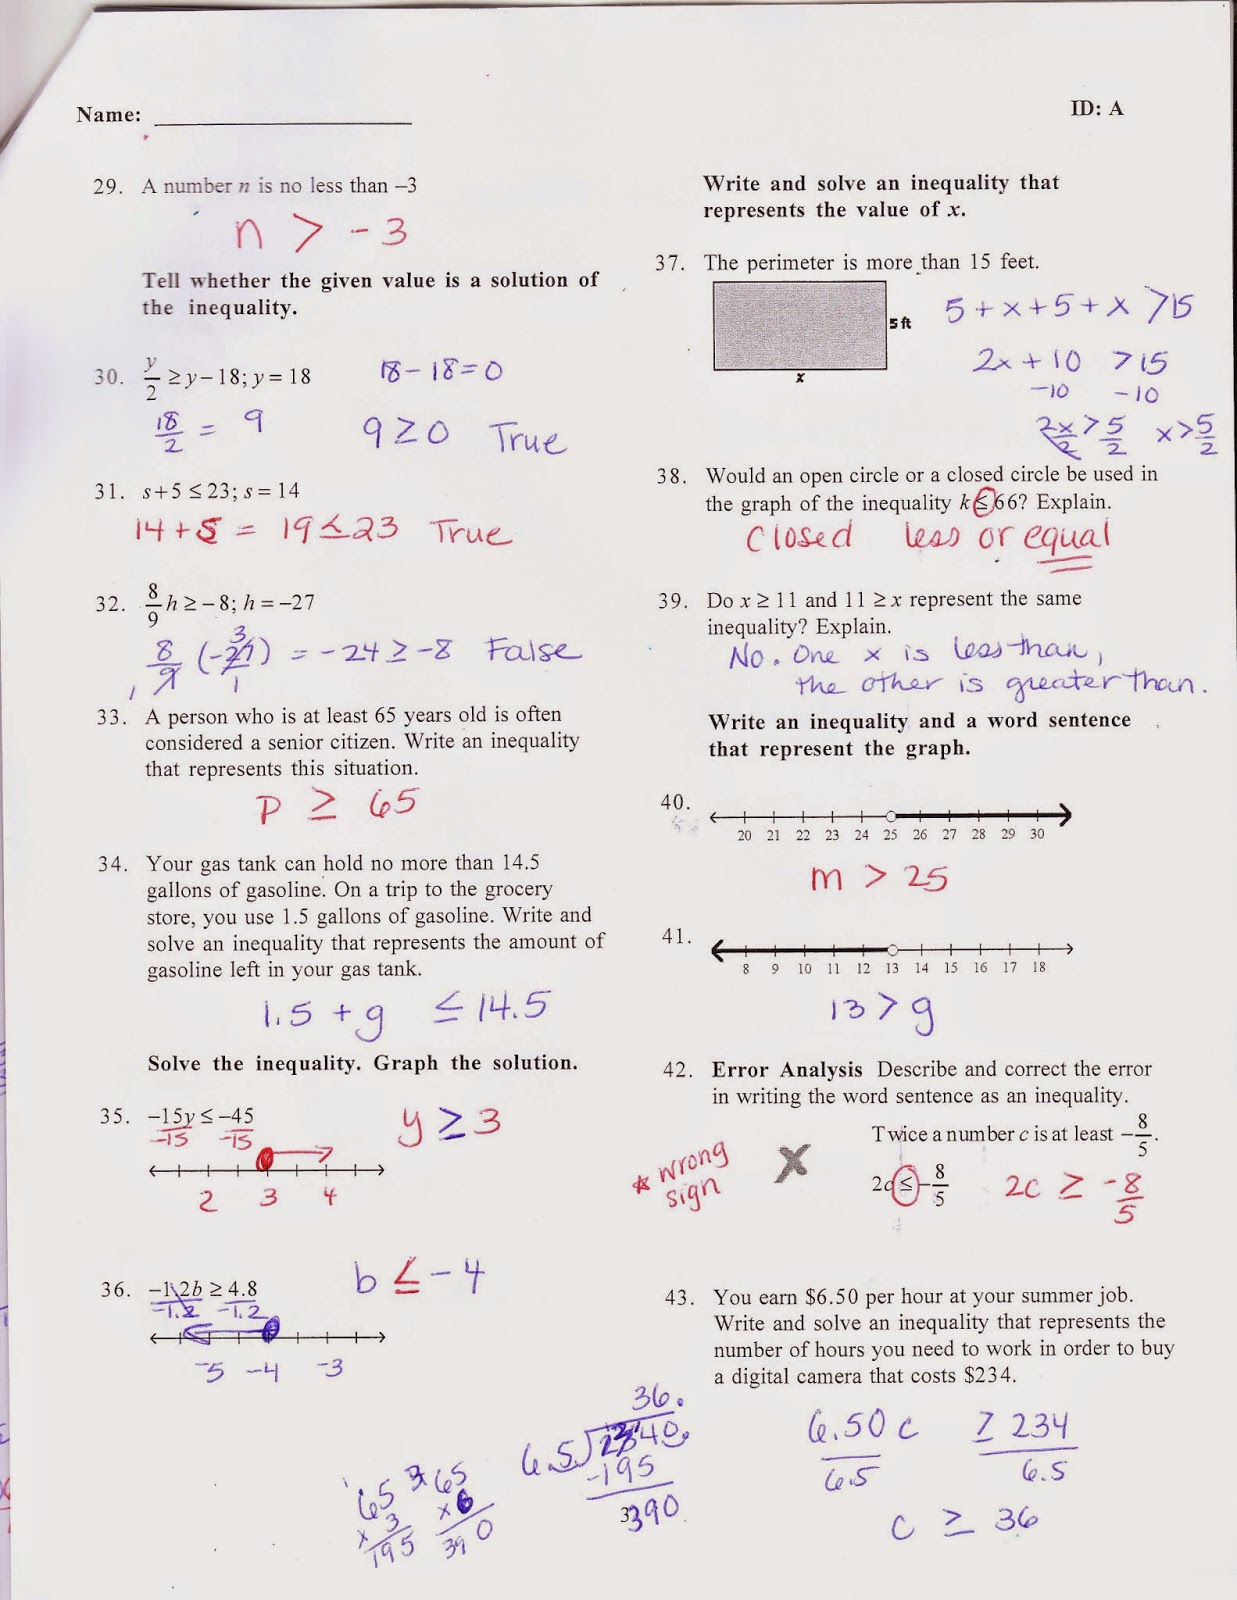 Name:
ID: A
29. A number n is no less than –3
n > -3
Tell whether the given value is a solution of
the inequality.
30. y/2 ≥ y – 18; y = 18
18 - 18 = 0
18/2 = 9
9 ≥ 0 True
31. s + 5 ≤ 23; s = 14
14 + 5 = 19 ≤ 23 True
32. 8/9 h ≥ – 8; h = –27
8/9 (-27) = -24 ≥ -8 False
3
1
1
33. A person who is at least 65 years old is often
considered a senior citizen. Write an inequality
that represents this situation.
P ≥ 65
34. Your gas tank can hold no more than 14.5
gallons of gasoline. On a trip to the grocery
store, you use 1.5 gallons of gasoline. Write and
solve an inequality that represents the amount of
gasoline left in your gas tank.
1.5 + g ≤ 14.5
Solve the inequality. Graph the solution.
35. –15y ≤ –45
-15 -15
y ≥ 3
2 3 4
36. –1.2b ≥ 4.8
-1.2 -1.2
b ≤ -4
-5 -4 -3
Write and solve an inequality that
represents the value of x.
37. The perimeter is more than 15 feet.
5 ft
x
5 + x + 5 + x > 15
2x + 10 > 15
-10 -10
2x/2 > 5/2 x > 5/2
38. Would an open circle or a closed circle be used in
the graph of the inequality k ≤ 66? Explain.
Closed less or equal
39. Do x ≥ 11 and 11 ≥ x represent the same
inequality? Explain.
No. One x is less than,
the other is greater than.
Write an inequality and a word sentence
that represent the graph.
40.
20 21 22 23 24 25 26 27 28 29 30
m > 25
41.
8 9 10 11 12 13 14 15 16 17 18
13 > g
42. Error Analysis Describe and correct the error
in writing the word sentence as an inequality.
Twice a number c is at least –8/5.
* wrong
sign
X
2c ≤ –8/5
2c ≥ -8/5
43. You earn $6.50 per hour at your summer job.
Write and solve an inequality that represents the
number of hours you need to work in order to buy
a digital camera that costs $234.
6.50c ≥ 234
6.5 6.5
c ≥ 36
36.
6.5 2340
-195
390
65
x 3
195
3
65
x 6
390